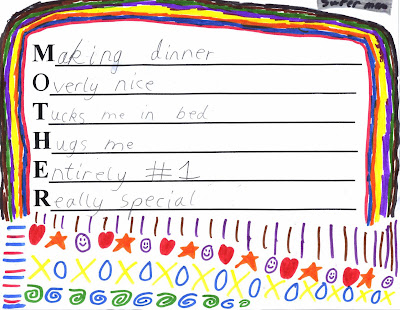 Super mom
Making dinner
Overly nice
Tucks me in bed
Hugs me
Entirely #1
Really special
XOXOXOXOXOXOXOXOX